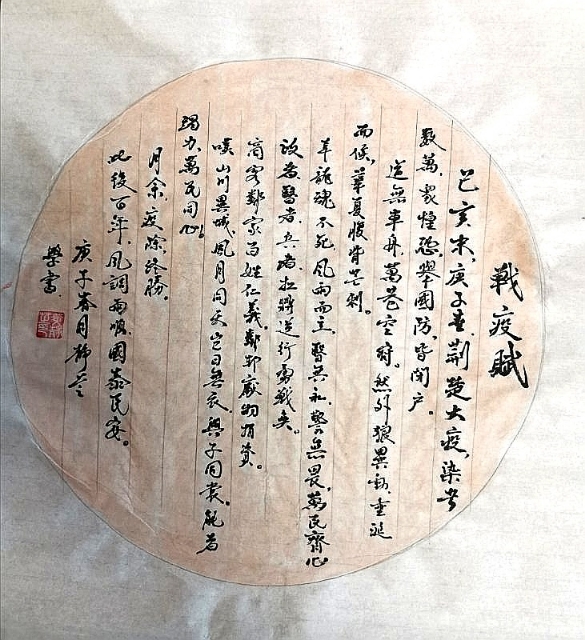 戰疫賦
己亥末、庚子春、荆楚大疫、染者
數萬、衆惶恐、舉國防、皆閉户。
道無車舟、萬巷空寂。然外狼異動、垂涎
而候、華夏腹背芒刺。
幸龍魂不死、風雨而立、醫無私、警無畏、萬民齊心
政者、醫者、兵者、扛逆行勇戰矣。
商客鄰家百姓仁義、鄰邦獻物捐資。
嘆山川異域、風月同天、岂曰無衣、與子同裳。能者
竭力、萬民同心！
月余、疫除終勝。
此後百年、風調雨順、國泰民安。
庚子春月
學書